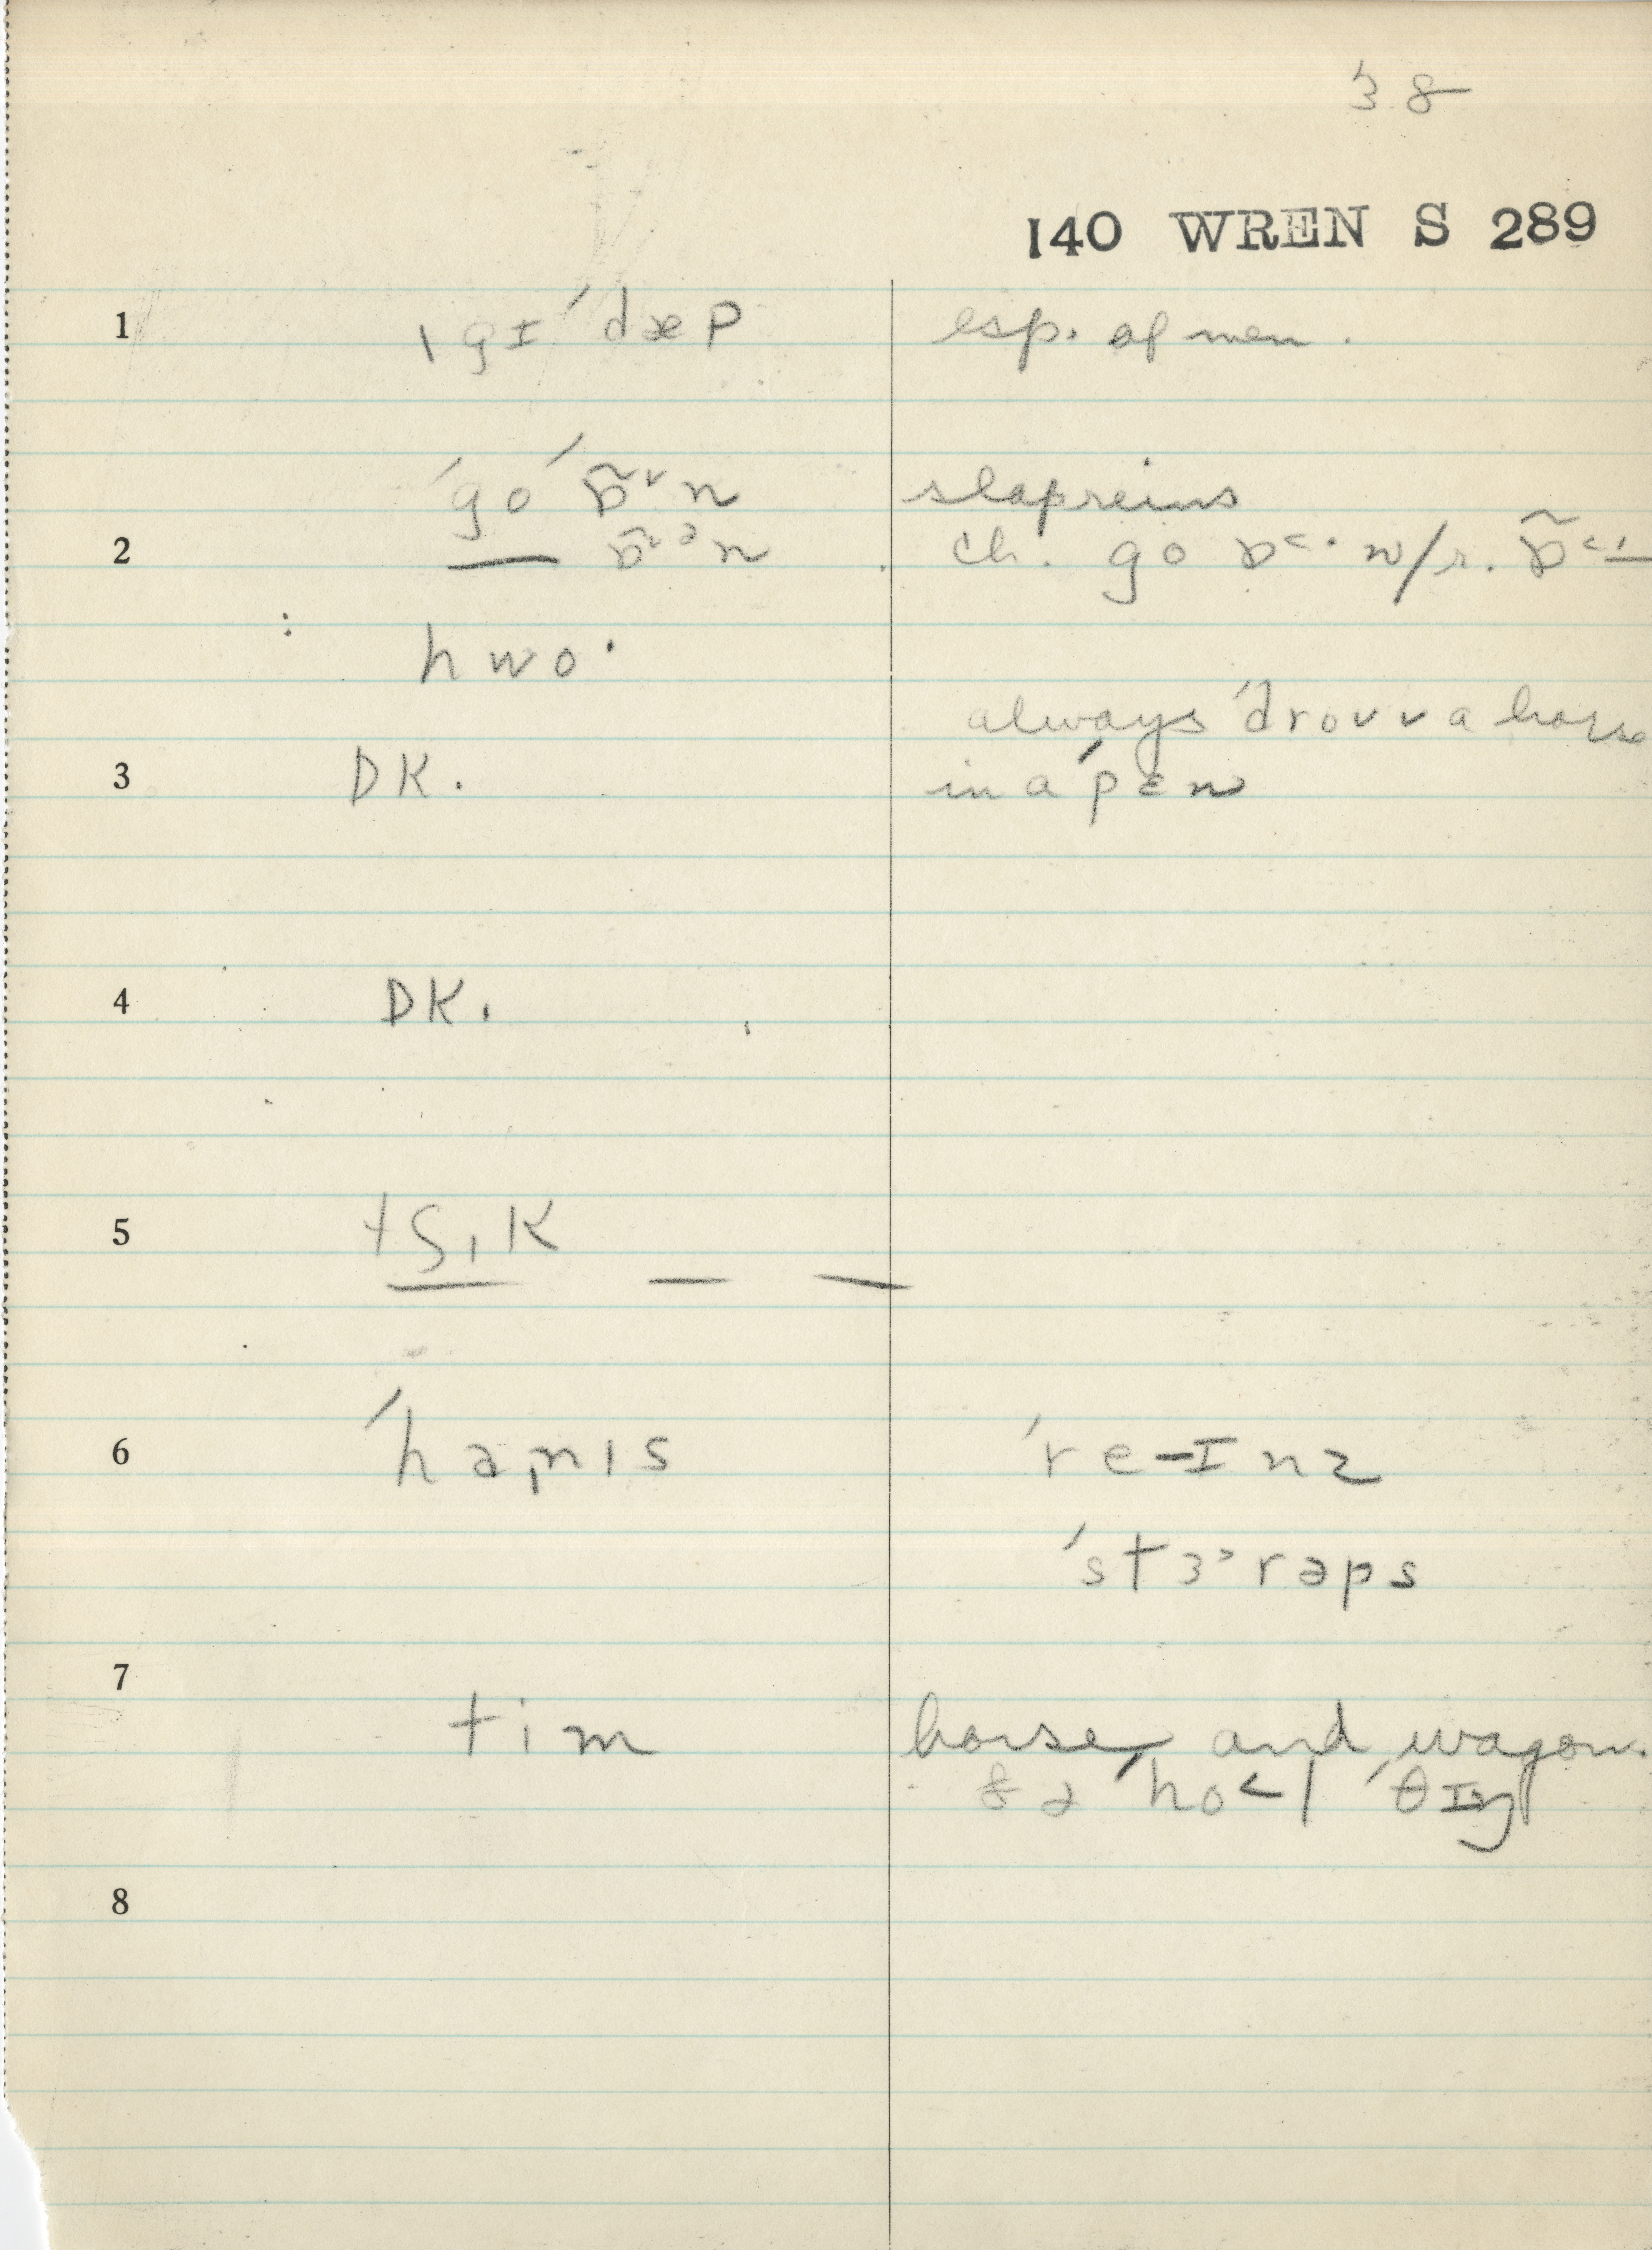 38
140 WREN S 289
1 ˌgɪ ˈdæp esp. of men.
ˈgo ˈɒ̃˅n slap reins
2 ch. go
hwo·
always ˈdrovv a horse
3 DK. in a ˈpɛn
4 DK.
5 tʃɪk
6 ˈhamɪs ˈre-ɪnz
ˈstɜ˃rəps
7
tim horse and wagon.
ðə ˈho˂l ˈθɪŋ
8